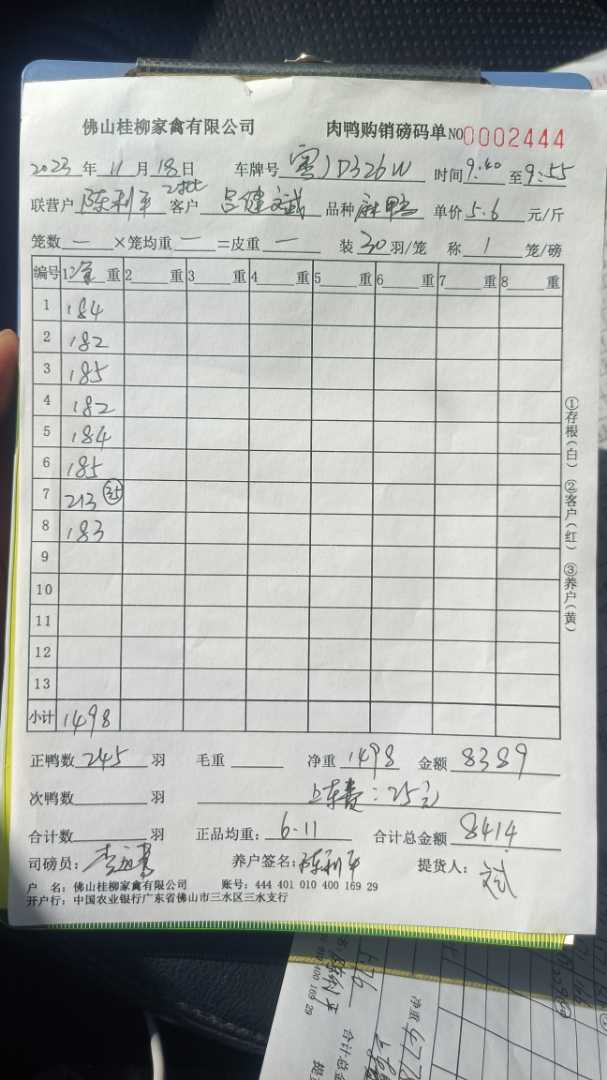 佛山桂柳家禽有限公司 肉鸭购销磅码单 NO0002444
2023年11月18日 车牌号 粤JD326W 时间9:40至9:55
联营户 陈利平 2批 客户 吕健文武 品种 麻鸭 单价5.6元/斤
笼数 一 ×笼均重 一 =皮重 一 装30羽/笼 称 1 笼/磅
编号 1净重 2 重 3 重 4 重 5 重 6 重 7 重 8 重
1 184
2 182
3 185
4 182
5 184
6 185
7 213 35
8 183
9
10
11
12
13
小计 1498
正鸭数 245 羽 毛重 净重 1498 金额 8389
次鸭数 羽 上车费:25元
合计数 羽 正品均重: 6.11 合计总金额 8414
司磅员: 养户签名: 陈利平 提货人: 文武
户 名: 佛山桂柳家禽有限公司 账号: 444 401 010 400 169 29
开户行: 中国农业银行广东省佛山市三水区三水支行
①存根(白) ②客户(红) ③养户(黄)